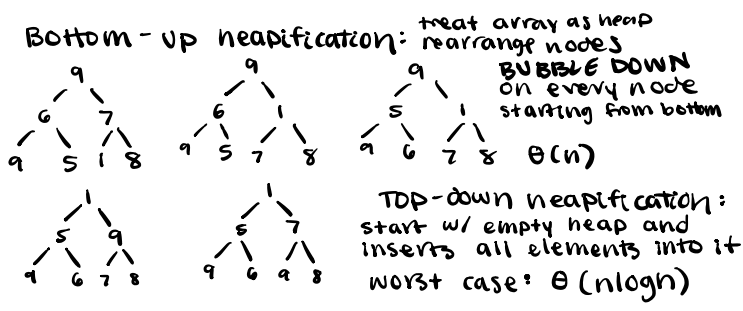 Bottom-up heapification: treat array as heap
rearrange nodes
BUBBLE DOWN
on every node
starting from bottom
θ(n)
9
6 7
9 5 1 8
9
6 1
9 5 7 8
9
5 1
9 6 7 8
1
5 9
9 6 7 8
1
5 7
9 6 9 8
TOP-down heapification:
start w/ empty heap and
inserts all elements into it
worst case: θ(nlogn)